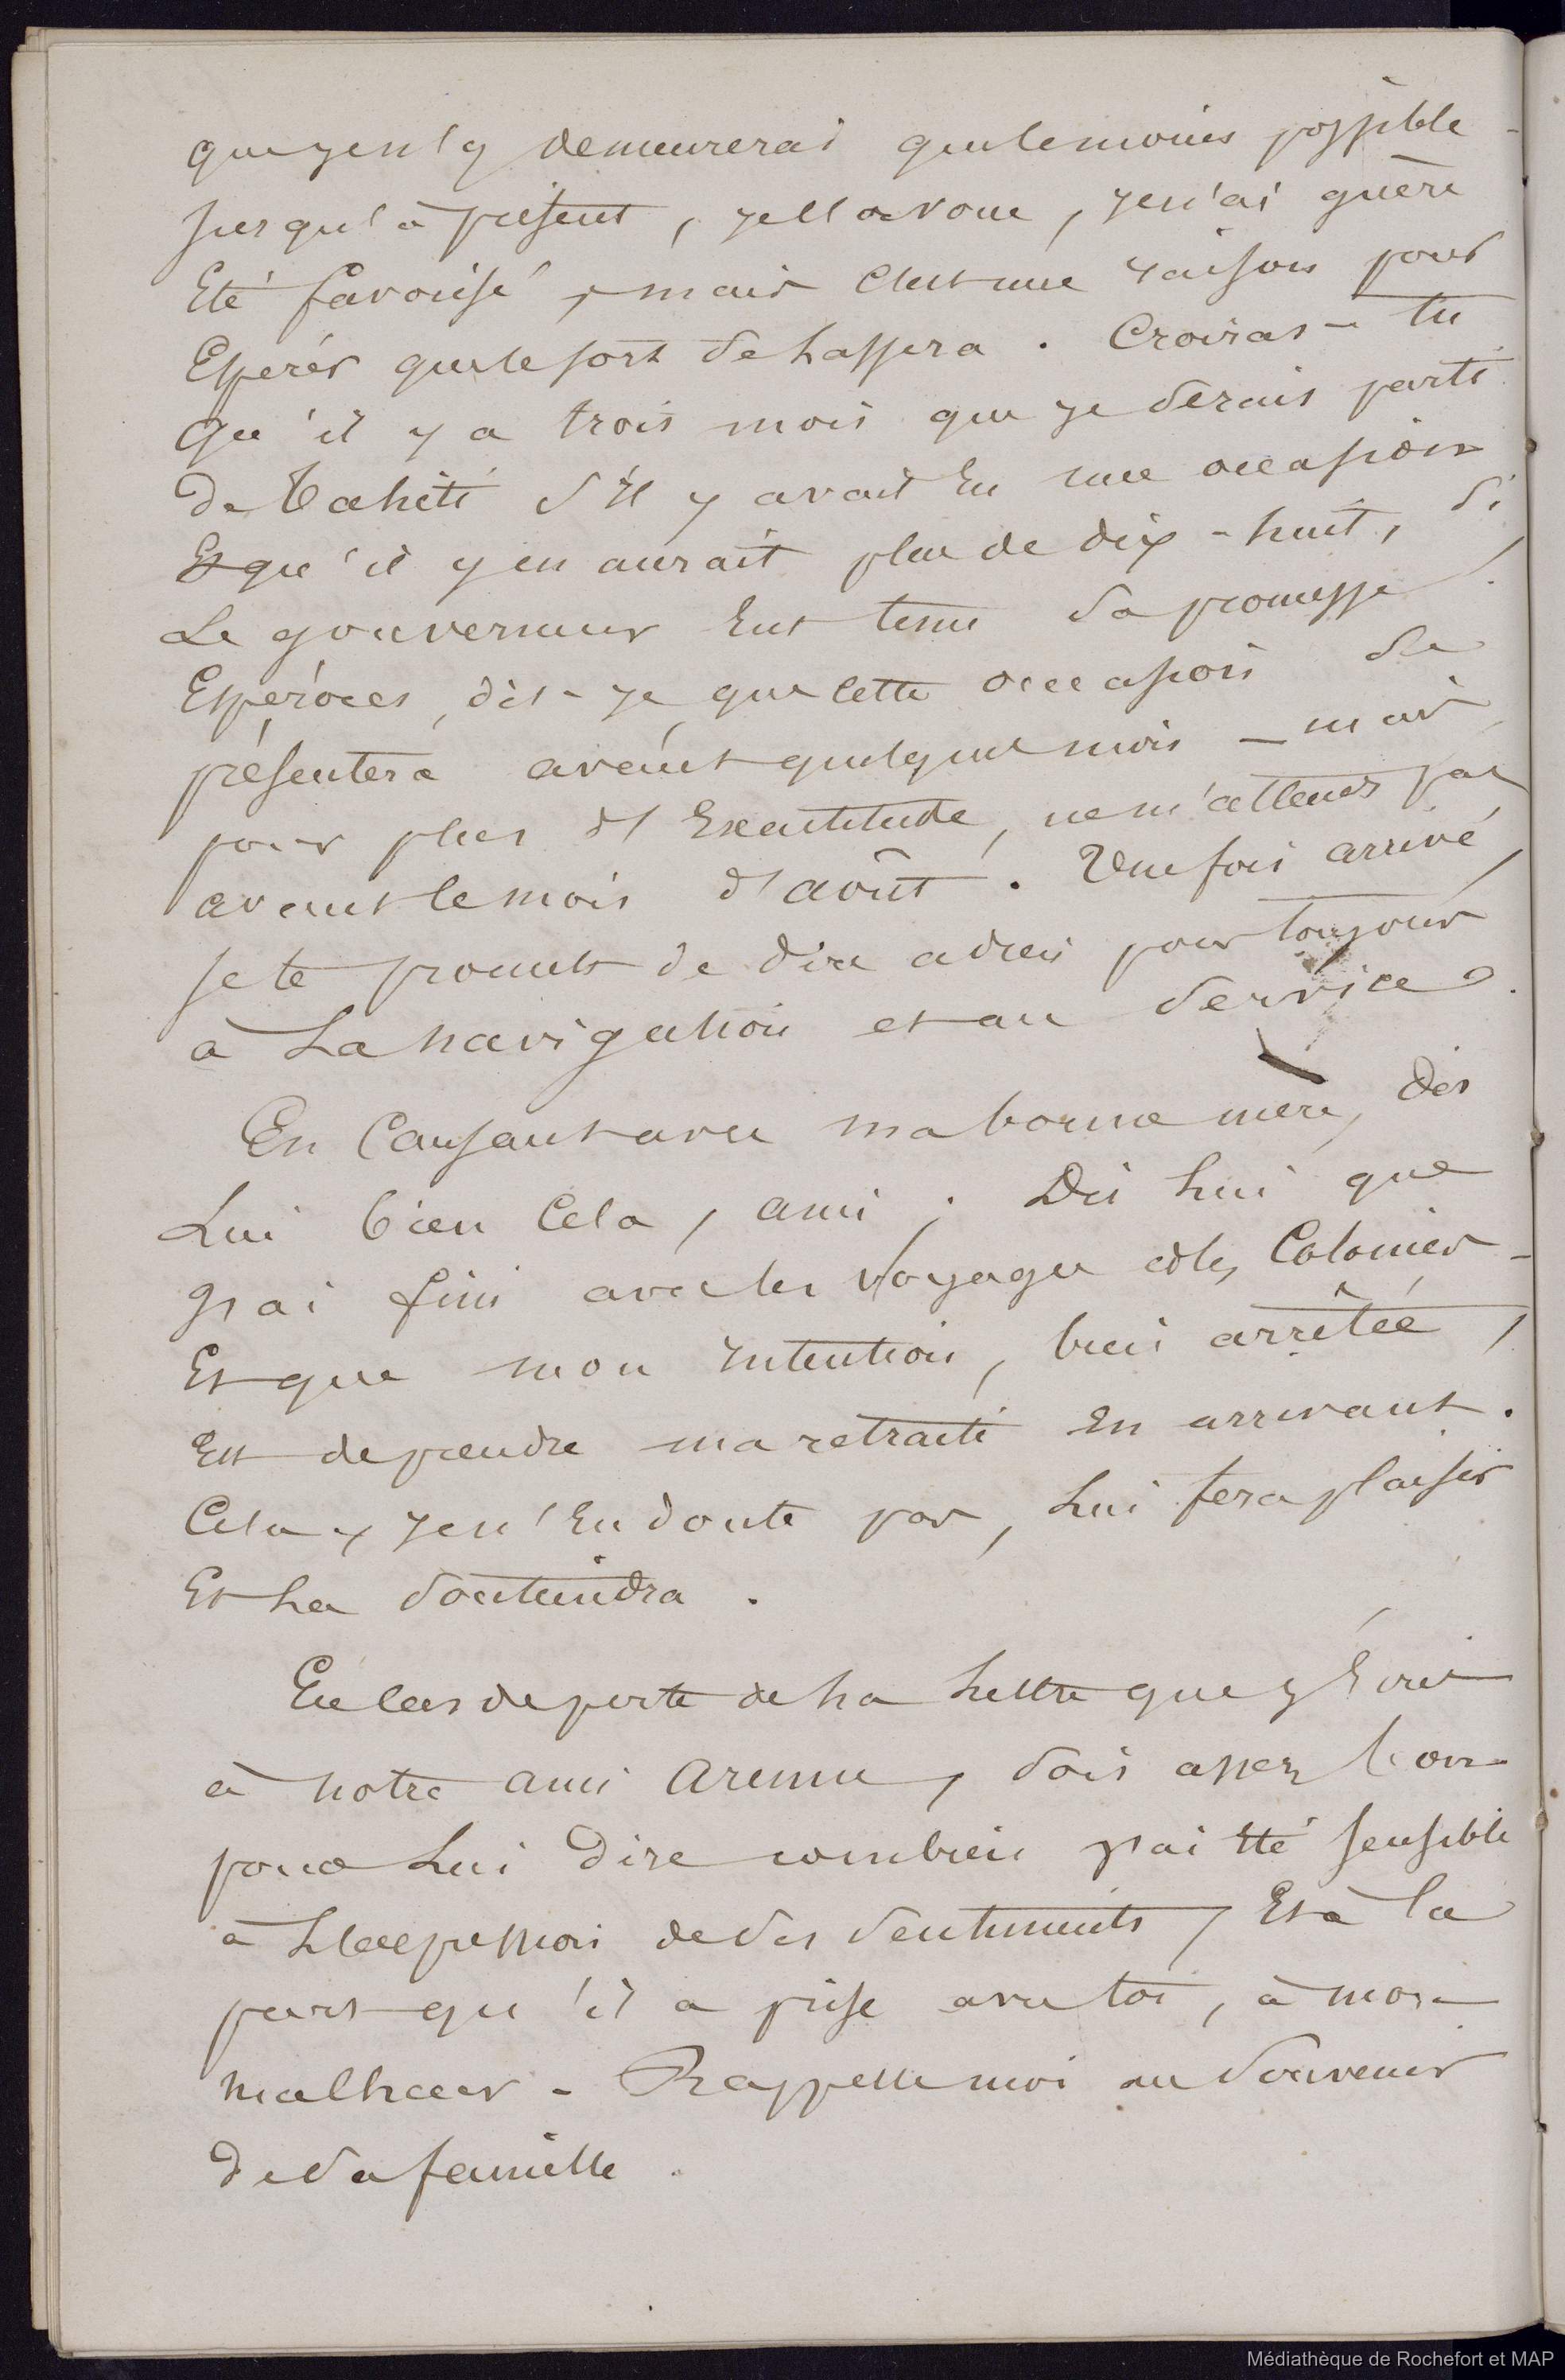 que je n'y demeurerai que le moins possible -
Jusqu'à présent, je l'avoue, je n'ai guère
Eté favorisé, mais c'est une raison pour
Espérer que le sort se lassera. Croiras-tu
qu'il y a trois mois que je serais parti
de Tahiti s'il y avait eu une occasion
Et qu'il y en aurait plus de dix-huit, si
Le gouverneur eut tenu sa promesse !
Espérons, dis-je que cette occasion se
présentera avant quelques mois - mais
pour plus d'Exactitude, ne m'attends pas
avant le mois d'août. Une fois arrivé,
Je te promets de dire adieu pour toujours
à La navigation et au service.
En Causant avec ma bonne mère, dis
Lui bien Cela, ami ; Dis lui que
J'ai fini avec les voyages & les Colonies -
Et que mon intention, bien arrêtée,
Est de prendre ma retraite en arrivant.
Cela, je n'en doute pas, lui fera plaisir
Et la soutiendra.
En cas de perte de la lettre que j'écris
à notre ami , sois assez bon
pour Lui dire combien j'ai été sensible
à L'expression de ses sentiments, Et à la
part qu'il a prise avec toi, à mon
malheur - Rappelle moi au souvenir
de sa famille.
Médiathèque de Rochefort et MAP